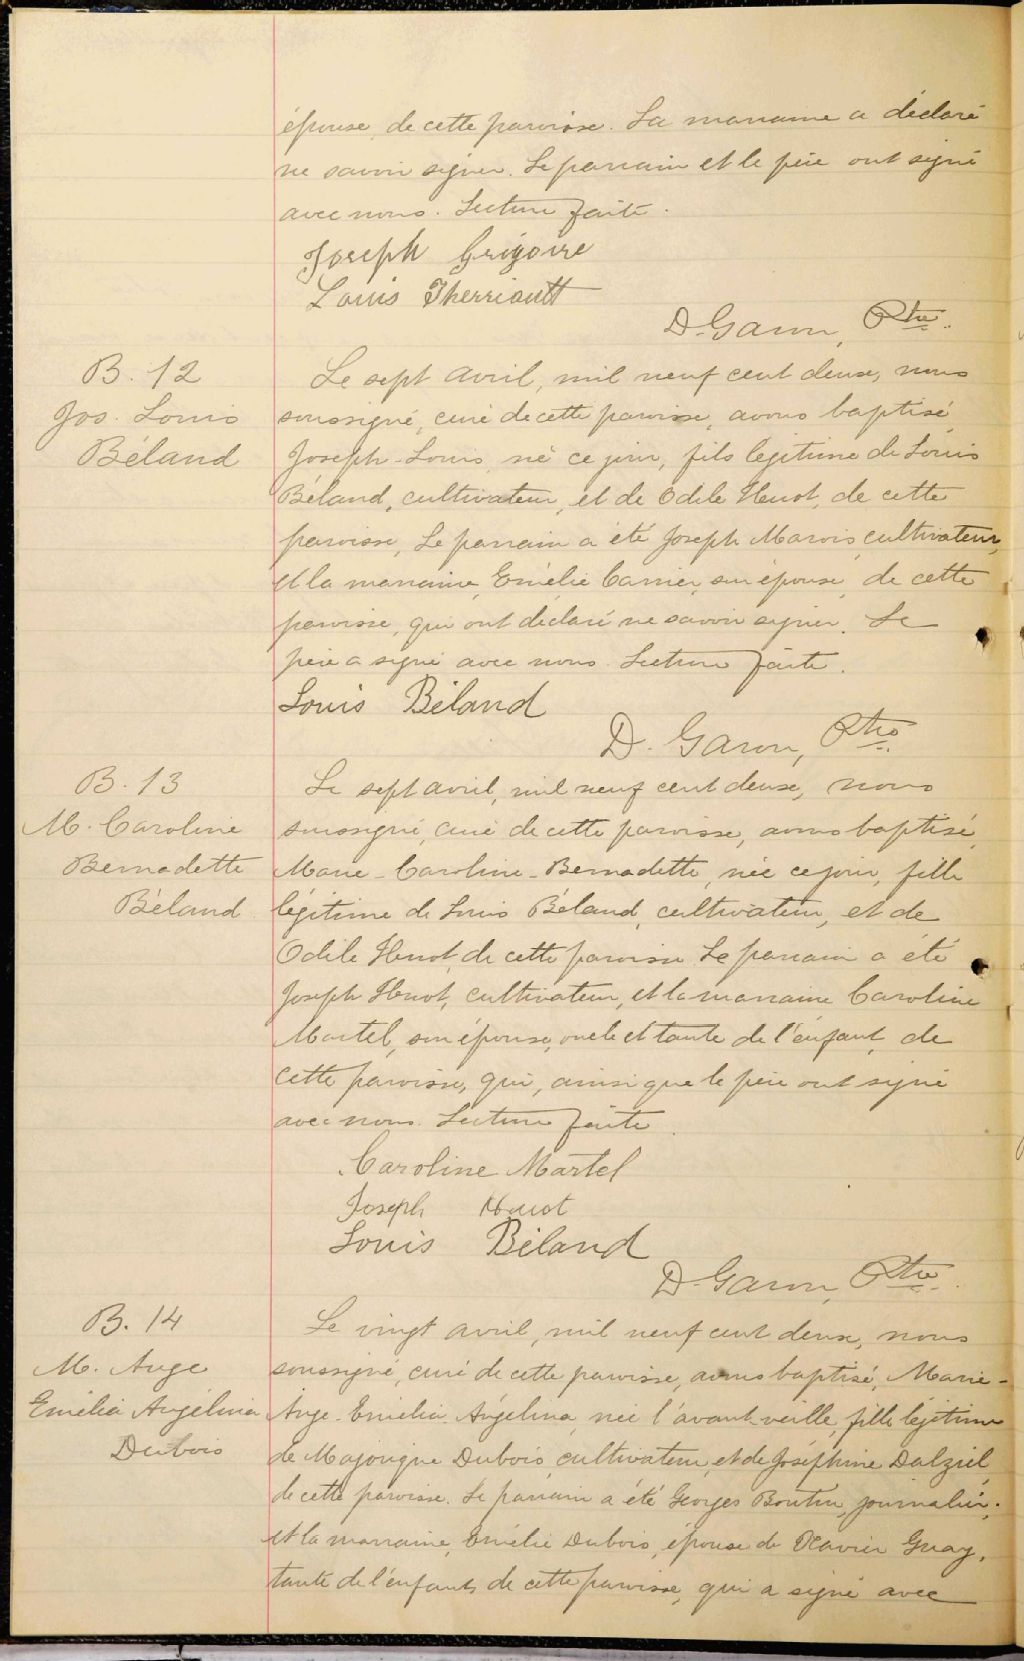 épouse, de cette paroisse. La marraine a déclaré
ne savoir signer. Le parrain et le père ont signé
avec nous. Lecture faite.
Joseph Grégoire
Louis Therriault
D. Garon, Ptre.
B. 12
Jos. Louis
Béland
Le sept avril, mil neuf cent deux, nous
soussigné, curé de cette paroisse, avons baptisé
Joseph-Louis, né ce jour, fils légitime de Louis
Béland, cultivateur, et de Odile Huot, de cette
paroisse, Le parrain a été Joseph Marois, cultivateur,
et la marraine, Emélie Carrier, son épouse, de cette
paroisse, qui ont déclaré ne savoir signer. Le
père a signé avec nous. Lecture faite.
Louis Béland
D. Garon, Ptre
B. 13
M. Caroline
Bernadette
Béland
Le sept avril, mil neuf cent deux, nous
soussigné, curé de cette paroisse, avons baptisé,
Marie-Caroline-Bernadette, née ce jour, fille
légitime de Louis Béland, cultivateur, et de
Odile Huot, de cette paroisse Le parrain a été
Joseph Huot, cultivateur, et la marraine Caroline
Martel, son épouse, oncle et tante de l'enfant, de
cette paroisse, qui, ainsi que le père ont signé
avec nous. Lecture faite.
Caroline Martel
Joseph Houot
Louis Béland
D. Garon, Ptre.
B. 14
M. Ange
Emélia Angélina
Dubois
Le vingt avril, mil neuf cent deux, nous
soussigné, curé de cette paroisse, avons baptisé, Marie-
Ange-Emélia Angélina, née l'avant-veille, fille légitime
de Majorique Dubois, cultivateur, et de Joséphine Dalziel,
de cette paroisse. Le parrain a été Georges Boutin, journalier,
et la marraine, Emélie Dubois, épouse de Xavier Guay,
tante de l'enfant, de cette paroisse, qui a signé avec